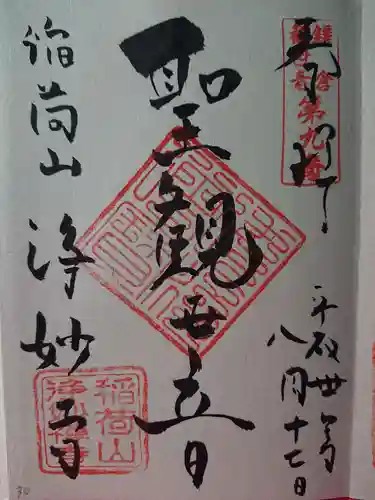 奉拝
鎌倉
観世音
第九番
平成丗年
八月十七日
聖観世音
稲荷山 浄妙寺
稲荷山
浄妙禅寺
30